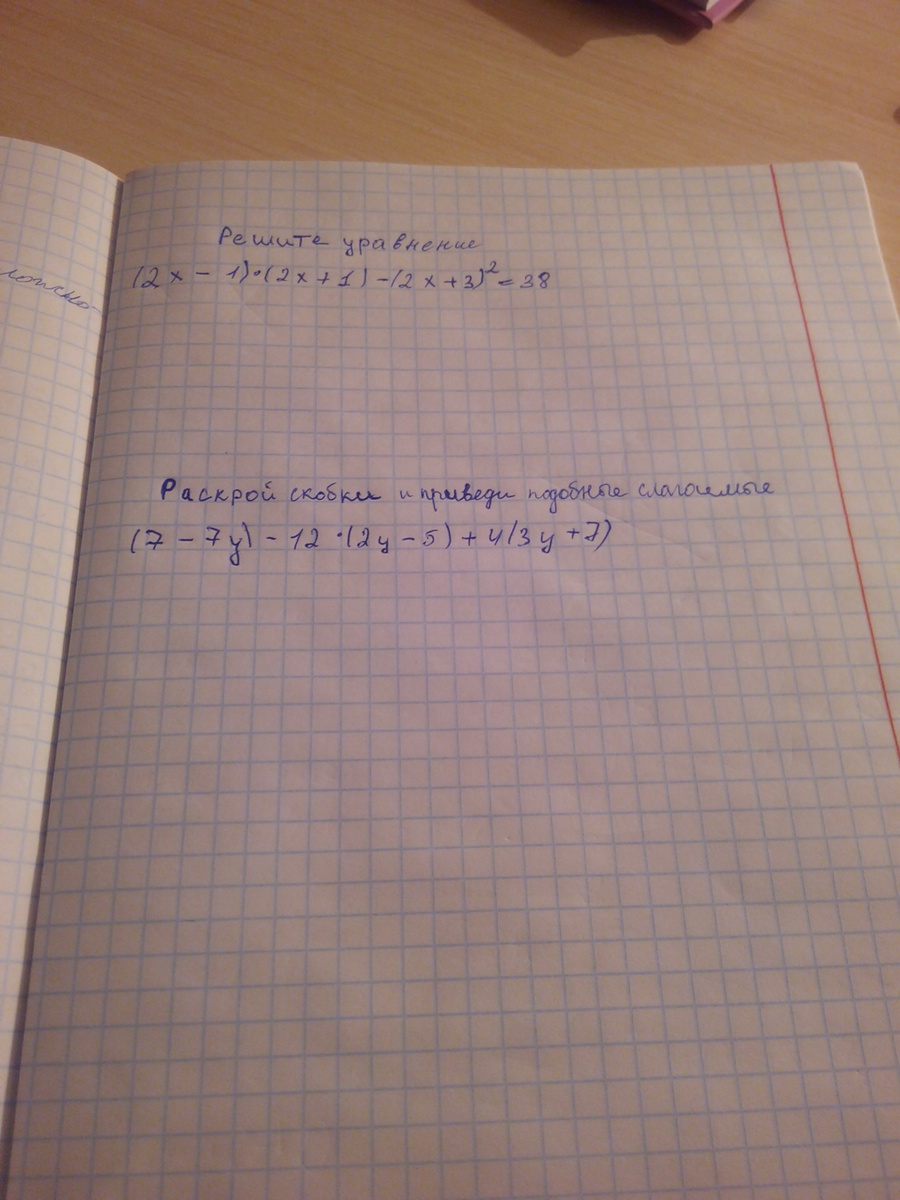 Решите уравнение
(2x - 1)·(2x + 1) - (2x + 3)² = 38
Раскрой скобки и приведи подобные слагаемые
(7 - 7y) - 12 · (2y - 5) + 4(3y + 7)